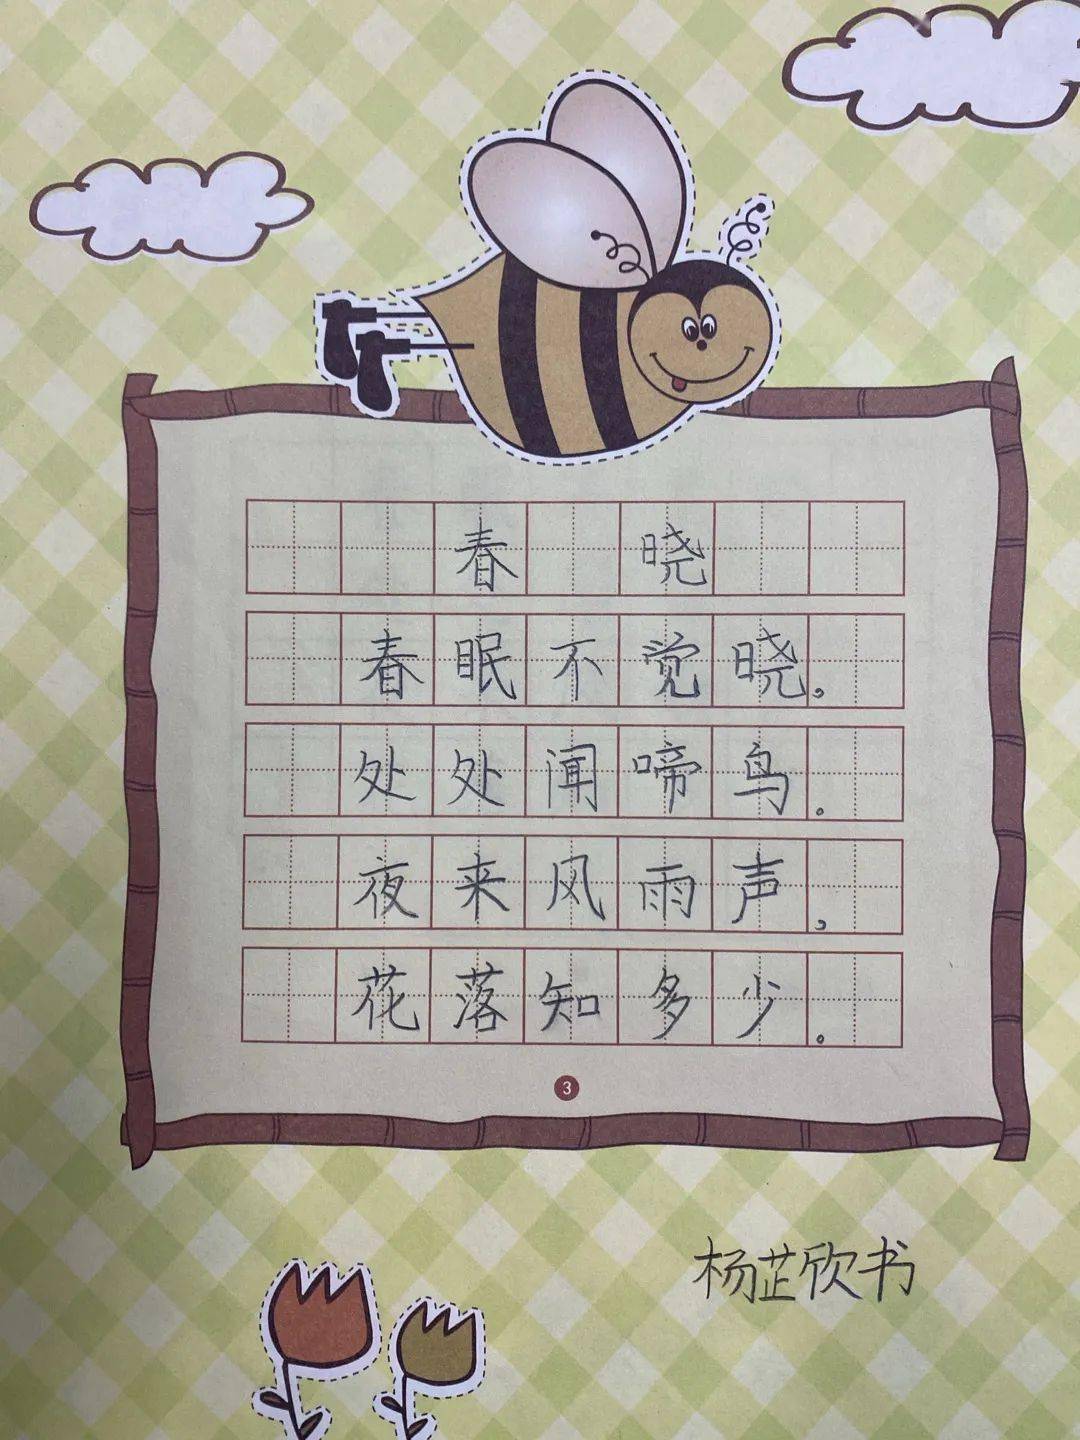 春晓
春眠不觉晓,
处处闻啼鸟.
夜来风雨声,
花落知多少.
3
杨芷欣书